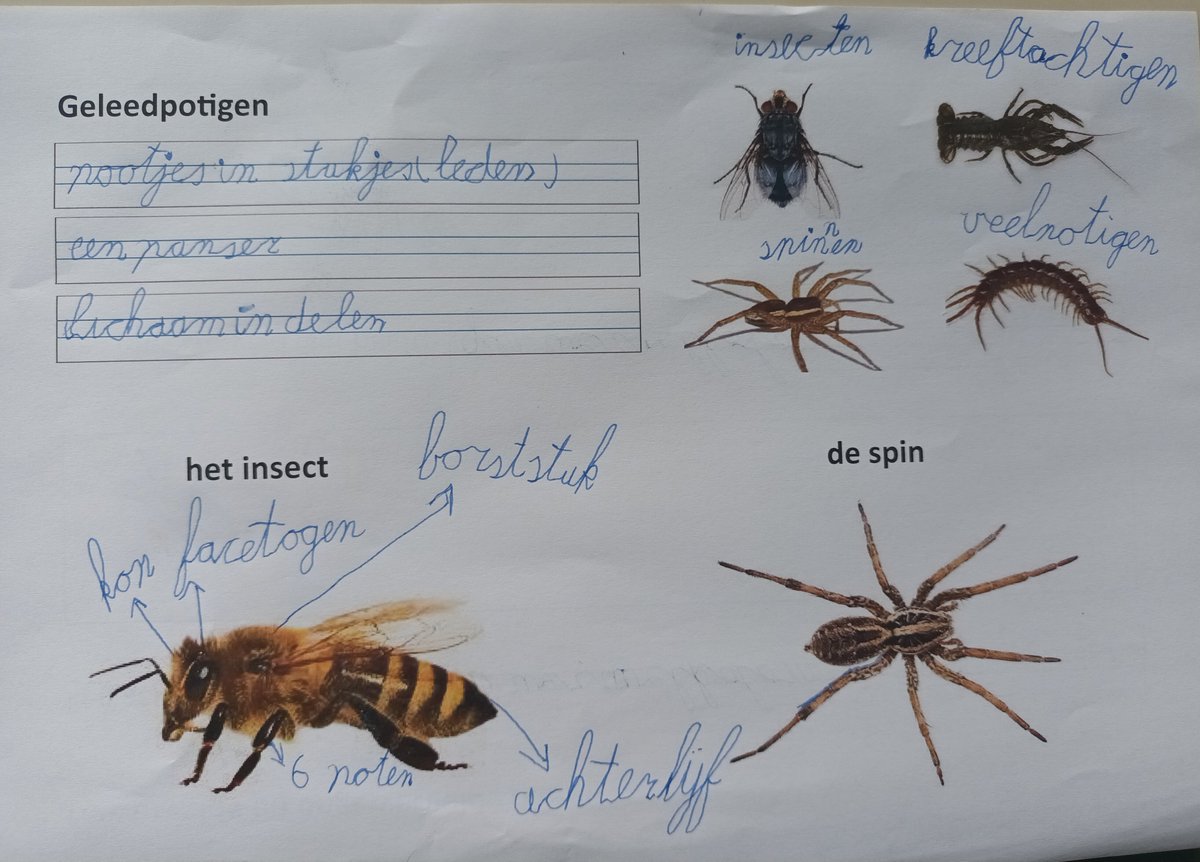 insecten
kreeftachtigen
Geleedpotigen
pootjes in stukjes (leden)
een panser
lichaam in delen
spinnen
veelpotigen
het insect
de spin
borststuk
kop
facetogen
6 poten
achterlijf